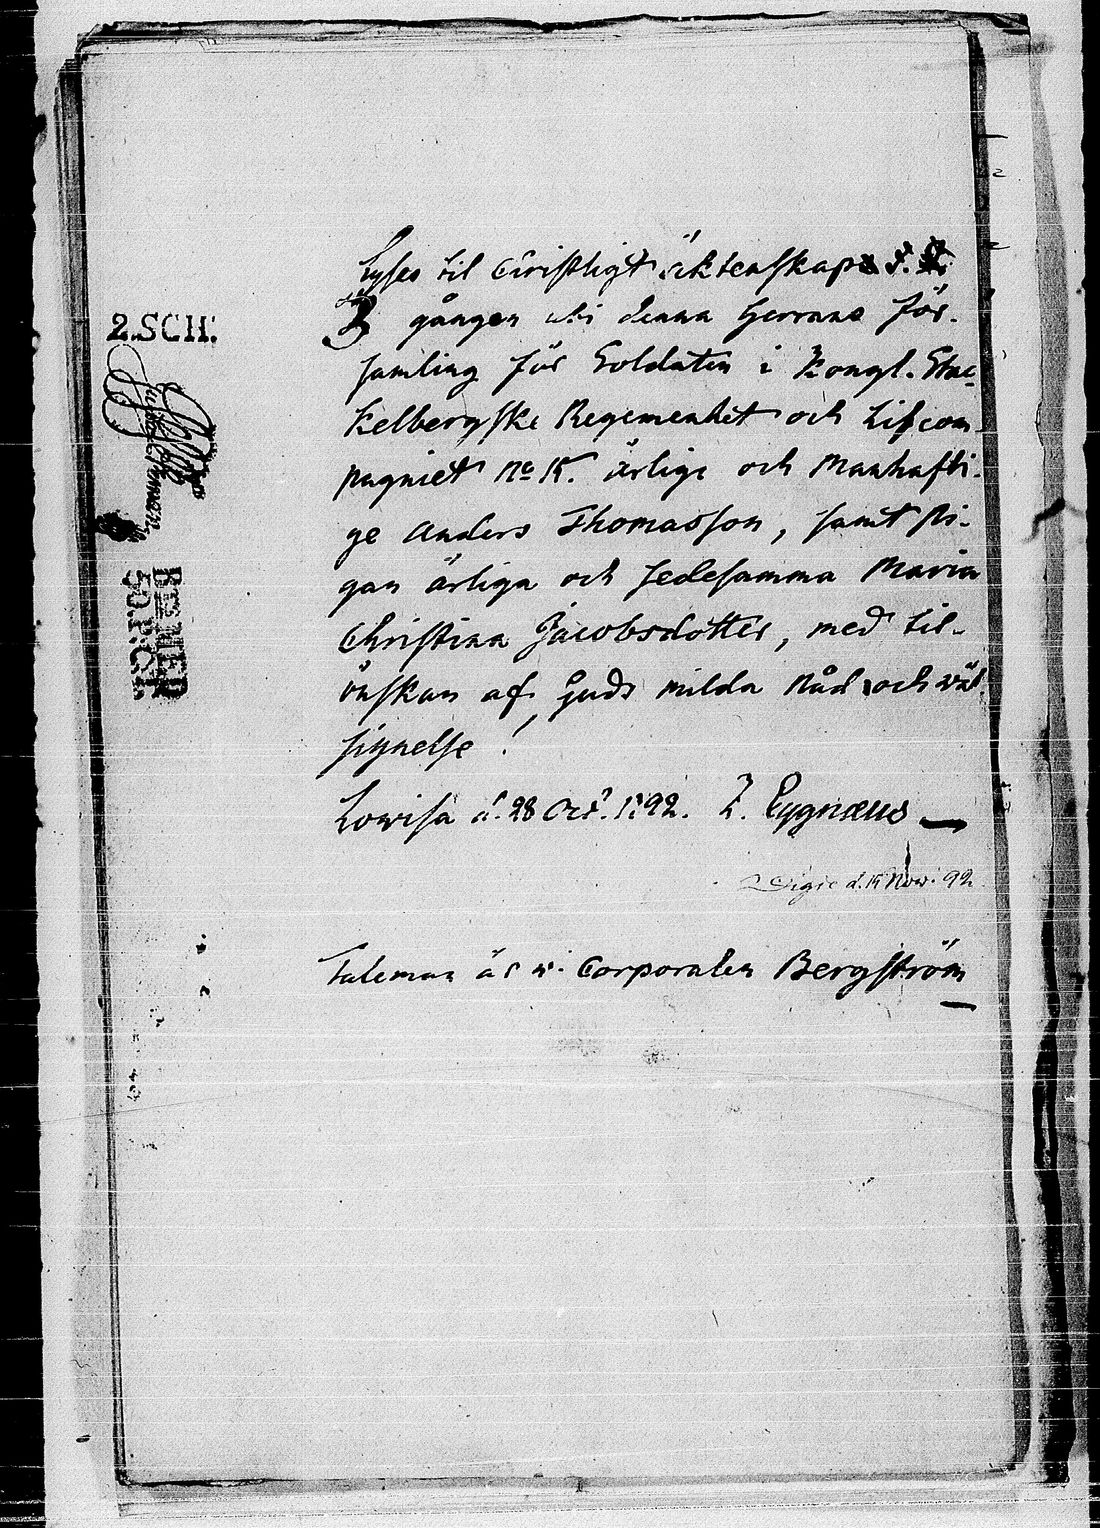 Lyses til Christligt äktenskap
3 gången uti denna Herrans För-
samling för Soldaten i Kongl. Stac-
kelbergske Regementet och Lifcom-
pagniet No 15. ärlige och Manhafti-
ge Anders Thomasson, samt Pi-
gan ärliga och sedesamma Maria
Christina Jacobsdotter, med til-
önskan af Guds milda Nåd och wäl-
signelse!
Lowisa d. 28 Oct. 1792. Z. Cygnæus
Vigde d. 15 Nov. 92
Taleman är v. Corporalen Bergström
2.SCH: